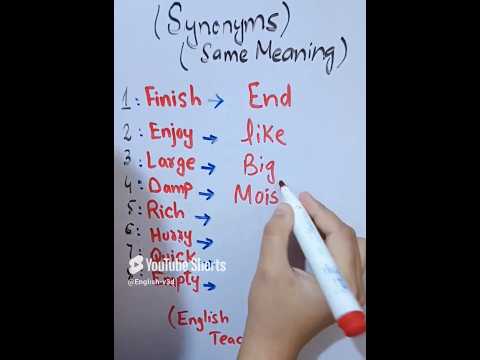 (Synonyms)
(Same Meaning)
1: Finish → End
2: Enjoy → like
3: Large → Big
4: Damp → Mois
5: Rich →
6: Hurry →
7: Quick →
8: Empty →
YouTube Shorts
@English-v3d
(English
Teac